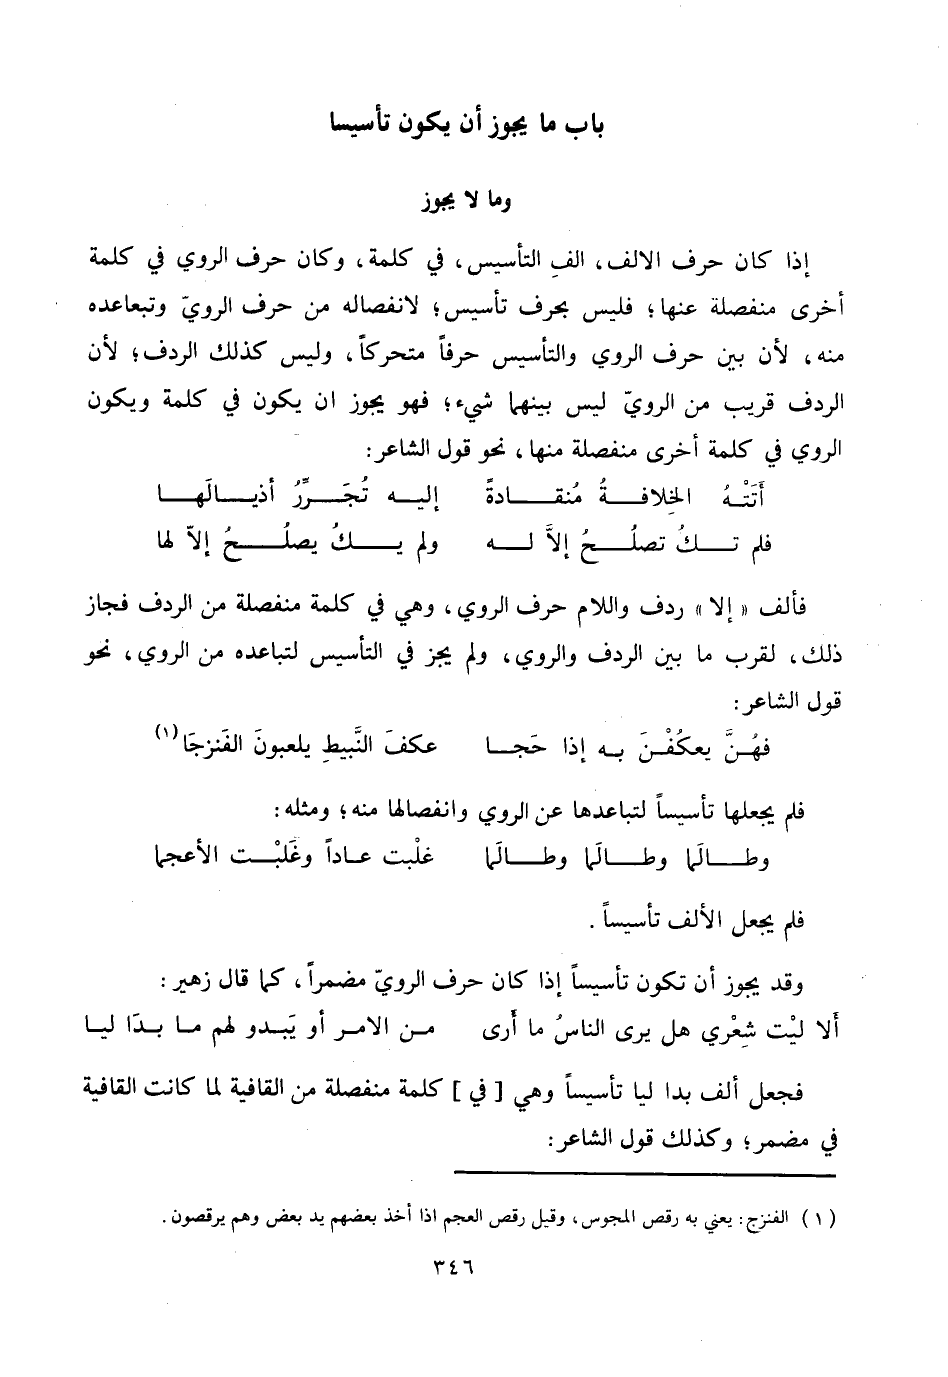 باب ما يجوز أن يكون تأسيسا
وما لا يجوز
إذا كان حرف الالف، الف التأسيس، في كلمة، وكان حرف الروي في كلمة
أخرى منفصلة عنها؛ فليس بحرف تأسيس؛ لانفصاله من حرف الرويّ وتبعاعده
منه، لأن بين حرف الروي والتأسيس حرفاً متحركاً، وليس كذلك الردف؛ لأن
الردف قريب من الرويّ ليس بينهما شيء؛ فهو يجوز ان يكون في كلمة ويكون
الروي في كلمة أخرى منفصلة منها، نحو قول الشاعر:
أَتَتْهُ الخلافةُ مُنقادةً إليه تُجَرِّرُ أذيالَها
فلم تكُ تصلُحُ إلاَّ له ولم يكُ يصلُحُ إلاّ لها
فألف «إلا» ردف واللام حرف الروي، وهي في كلمة منفصلة من الردف فجاز
ذلك، لقرب ما بين الردف والروي، ولم يجز في التأسيس لتباعده من الروي، نحو
قول الشاعر:
فهُنَّ يعكُفْنَ به إذا حَجا عكفَ النَّبيطِ يلعبونَ الفَنزجَا(١)
فلم يجعلها تأسيساً لتباعدها عن الروي وانفصالها منه؛ ومثله:
وطالَما وطالَما وطالَما غلْبت عاداً وغَلبْت الأعجما
فلم يجعل الألف تأسيساً.
وقد يجوز أن تكون تأسيساً إذا كان حرف الرويّ مضمراً، كما قال زهير:
أَلا ليْت شِعْري هل يرى الناسُ ما أَرى من الامر أو يَبدو لهم ما بدَا ليا
فجعل ألف بدا ليا تأسيساً وهي [في] كلمة منفصلة من القافية لما كانت القافية
في مضمر؛ وكذلك قول الشاعر:
(١) الفنزج: يعني به رقص المجوس، وقيل رقص العجم اذا أخذ بعضهم يد بعض وهم يرقصون.
٣٤٦